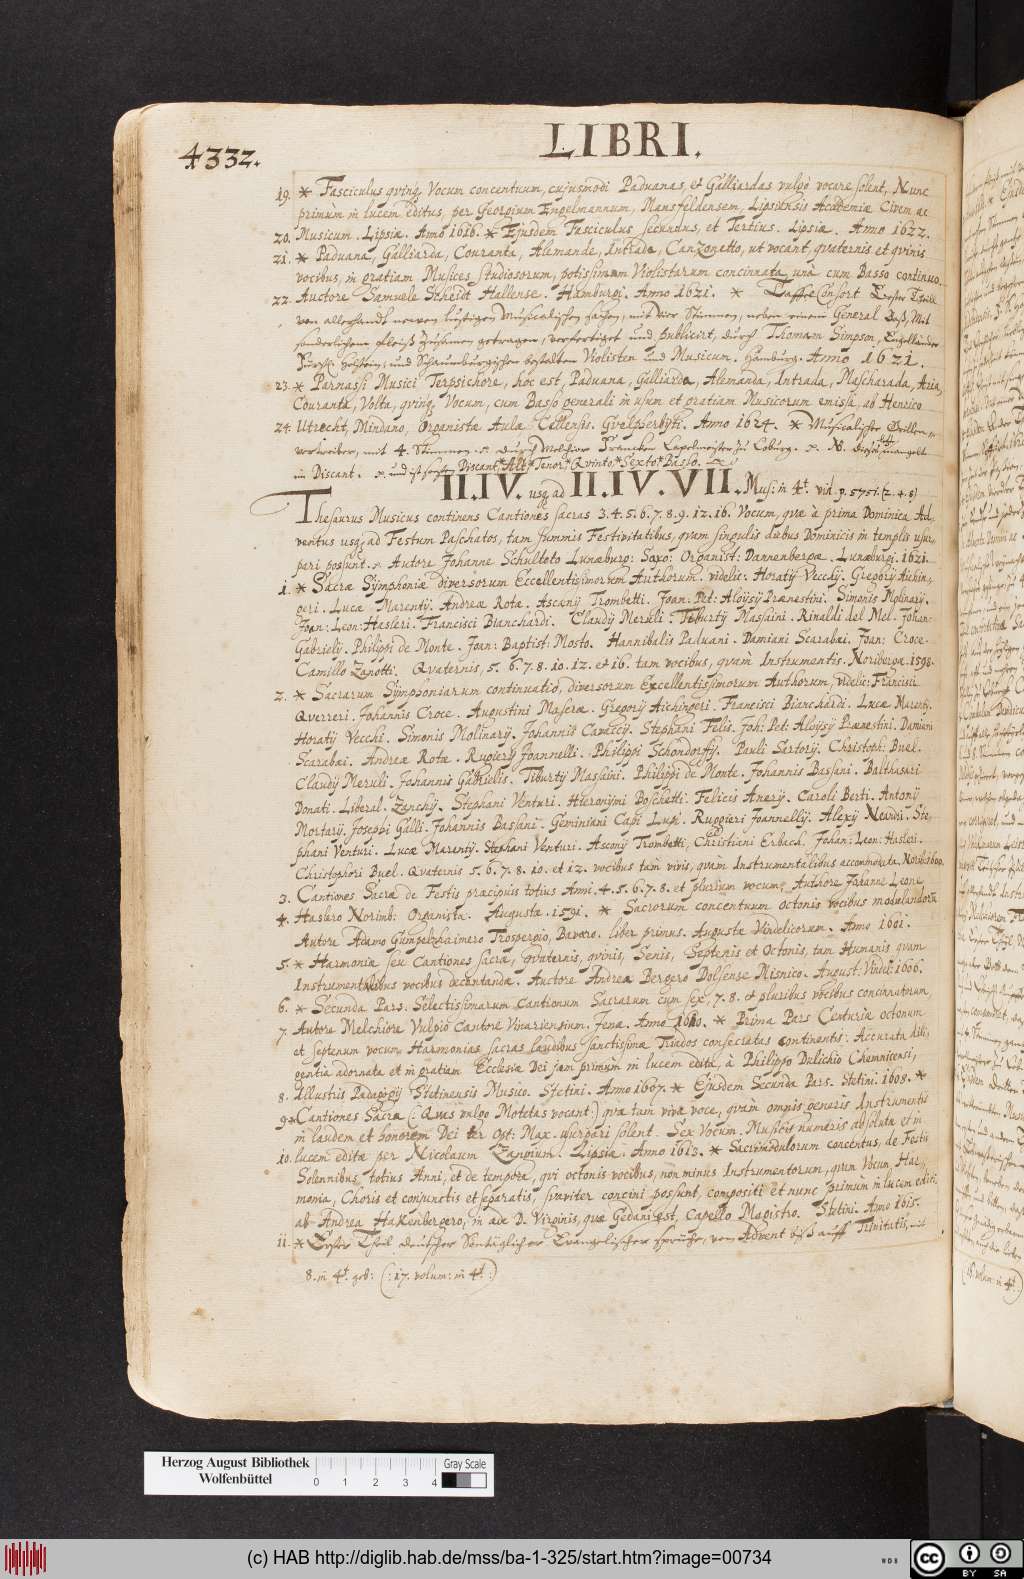 4332.
LIBRI.
19. * Fasciculus qvinq Vocum concentuum, cujusmodi Paduanas, et Galliardas vulgò vocare solent, Nunc
primùm in lucem editus, per Georgium Engelmannum, Mansfeldensem, Lipsiensis Academiæ Civem ac
20. Musicum. Lipsiæ. Anno 1616. * Ejusdem Fasciculus secundus, et Tertius. Lipsiæ. Anno 1622.
21. * Paduana, Galliarda, Couranta, Alemande, Intrada, Canzonetto, ut vocant, qvaternis et qvinis
vocibus, in gratiam Musices studiosorum, potissimum Violistarum concinnata, unà cum Basso continuo.
22. Auctore Samuele Scheidt Hallense. Hamburgi. Anno 1621. * Taffel Consort Erster Theil
von allerhandt newen lustigen Musicalischen sachen, mit vier Stimmen, neben einem General Baß, Mit
sonderlichem fleiß zusamen getragen, verfertiget und publicirt, durch Thomam Simpson, Engelländer
Fürstl. Holstein, und Schaumburgischen bestalten Violisten und Musicum. Hamburg. Anno 1621.
23. * Parnassi Musici Terpsichore, hoc est, Paduana, Galliarda, Alemanda, Intrada, Mascharada, Aria,
Couranta, Volta, qvinq. Vocum, cum Basso generali in usum et gratiam Musicorum emissa, ab Henrico
24. Utrecht, Mindano, Organista Aulæ Cellensis. Gvelpherbyti. Anno 1624. * Musicalischer Grillen
vertreiber, mit 4. Stimmen. durch Melchior Francken Capelmeister zu Coburg. NB. diesen mangelt
im Discant. und ist sonsten Discant. Alt. Tenor. Qvinto. Sexto. Basso.
II. IV. usq ad II. IV. VII. Mus: in 4t. vid p. 5751. (2. +. 8)
Thesaurus Musicus continens Cantiones sacras 3. 4. 5. 6. 7. 8. 9. 12. 16. Vocum, quæ à prima Dominica Ad-
ventus usq ad Festum Paschatos, tam summis Festivitatibus, qvam singulis diebus Dominicis in templis usur-
pari possunt. Autore Johanne Schultetο Lunæburg: Saxo: Organist: Dannenbergæ. Lunæburgi. 1621.
1. * Sacræ Symphoniæ diversorum Excellentissimorum Authorum. videlic: Horatÿ Vecchÿ. Gregorÿ Aichin-
geri. Lucæ Marentÿ. Andreæ Rotæ. Ascanÿ Trombetti. Joan: Pet: Aloÿsÿ Prænestini. Simonis Molinarÿ.
Joan: Leon: Hasleri. Francisci Bianchardi. Claudÿ Meruli. Tiburtÿ Massaini. Rinaldi del Mel. Johan:
Gabrielÿ. Philippi de Monte. Joan: Baptist: Mosto. Hannibalis Paduani. Damiani Scarabæi. Joan: Croce.
Camillo Zanotti. Qvaternis, 5. 6. 7. 8. 10. 12. et 16. tam vocibus, qvàm Instrumentis. Noribergæ. 1598.
2. * Sacrarum Symphoniarum continuatio, diversorum Excellentissimorum Authorum, videlic: Francisci
Qverreri. Johannis Croce. Augustini Maseræ. Gregorÿ Aichingeri. Francisci Bianchardi. Lucæ Marentÿ.
Horatÿ Vecchi. Simonis Molinarÿ. Johannis Cavaccÿ. Stephani Felis. Joh: Pet: Aloÿsÿ Prænestini. Damiani
Scarabæi. Andreæ Rotæ. Rugierÿ Joannelli. Philippi Schöndorfÿ. Pauli Sartorÿ. Christoph: Buel.
Claudÿ Meruli. Johannis Gabrielis. Tiburtÿ Massaini. Philippi de Monte. Johannis Bassani. Balthasari
Donati. Liberal. Zanchÿ. Stephani Venturi. Hieronÿmi Boschetti. Felicis Anerÿ. Caroli Berti. Antonÿ
Mortarÿ. Josephi Galli. Johannis Bassani. Geminiani Capi Lupi. Ruggieri Joannellÿ. Alexÿ Neandri. Ste-
phani Venturi. Lucæ Marentÿ. Stephani Venturi. Asconÿ Trombetti, Christiani Erbach. Johan: Leon: Hasleri.
Christophori Buel. Qvaternis 5. 6. 7. 8. 10. et 12. vocibus tàm vivis, qvàm Instrumentalibus accommodata. Norib. 1600.
3. Cantiones Sacræ de Festis præcipuis totius Anni. 4. 5. 6. 7. 8. et plurium vocum. Authore Johanne Leone
4. Haslero Norimb: Organista. Augustæ. 1591. * Sacrorum concentuum octonis vocibus modulandorum
Autore Adamo Gumpelzhaimero Trospergio, Bavaro. liber primus. Augustæ Vindelicorum. Anno 1601.
5. * Harmoniæ seu Cantiones sacræ, Qvaternis, qvinis, Senis, Septenis et Octonis, tam Humanis qvam
Instrumentalibus vocibus decantandæ. Auctore Andrea Bergero Dolsense Misnico. August: Vindel: 1606.
6. * Secunda Pars. Selectissimarum Cantionum Sacrarum cum sex, 7. 8. et pluribus vocibus concinnatarum,
7. Autore Melchiore Vulpio Cantore Vinariensium. Jenæ. Anno 1610. * Prima Pars Centuriæ octonum
et septenum vocum, Harmonias sacras laudibus sanctissimæ Triados consecratas continentis: Accurata dili-
gentia adornata et in gratiam Ecclesiæ Dei jam primùm in lucem edita, à Philippo Dulichio Chemnicensi,
8. Illustris Pædagogÿ Stetinensis Musico. Stetini. Anno 1607. * Ejusdem Secunda Pars. Stetini. 1608. *
9. * Cantiones Sacræ (: Qvas vulgo Motetas vocant:) qvæ tàm vivæ voce, qvàm omnis generis Instrumentis
in laudem et honorem Dei ter Opt: Max. usurpari solent. Sex Vocum. Musicis numeris absolutæ et in
10. lucem editæ per Nicolaum Zangium. Lipsiæ. Anno 1613. * Sacrimodulorum concentus, de Festis
Solennibus totius Anni, et de tempore, qvi octonis vocibus, non minus Instrumentorum, qvam Vocum Har-
monia, Choris et conjunctis et separatis, suaviter concini possunt, compositi et nunc primùm in lucem editi,
ab Andrea Hakenbergero, in æde D. Virginis, quæ Gedani est, Capellæ Magistro. Stetini. Anno 1615.
11. * Erster Theil deutscher Sontäglicher Evangelischer sprüche, von Advent biß auff Trinitatis, mit
8. in 4t. geb: (: 17. volum: in 4t. :)
(18. volum: in 4t:)
Herzog August Bibliothek
Wolfenbüttel
0 1 2 3 4
Gray Scale
(c) HAB http://diglib.hab.de/mss/ba-1-325/start.htm?image=00734
WDB
cc BY SA